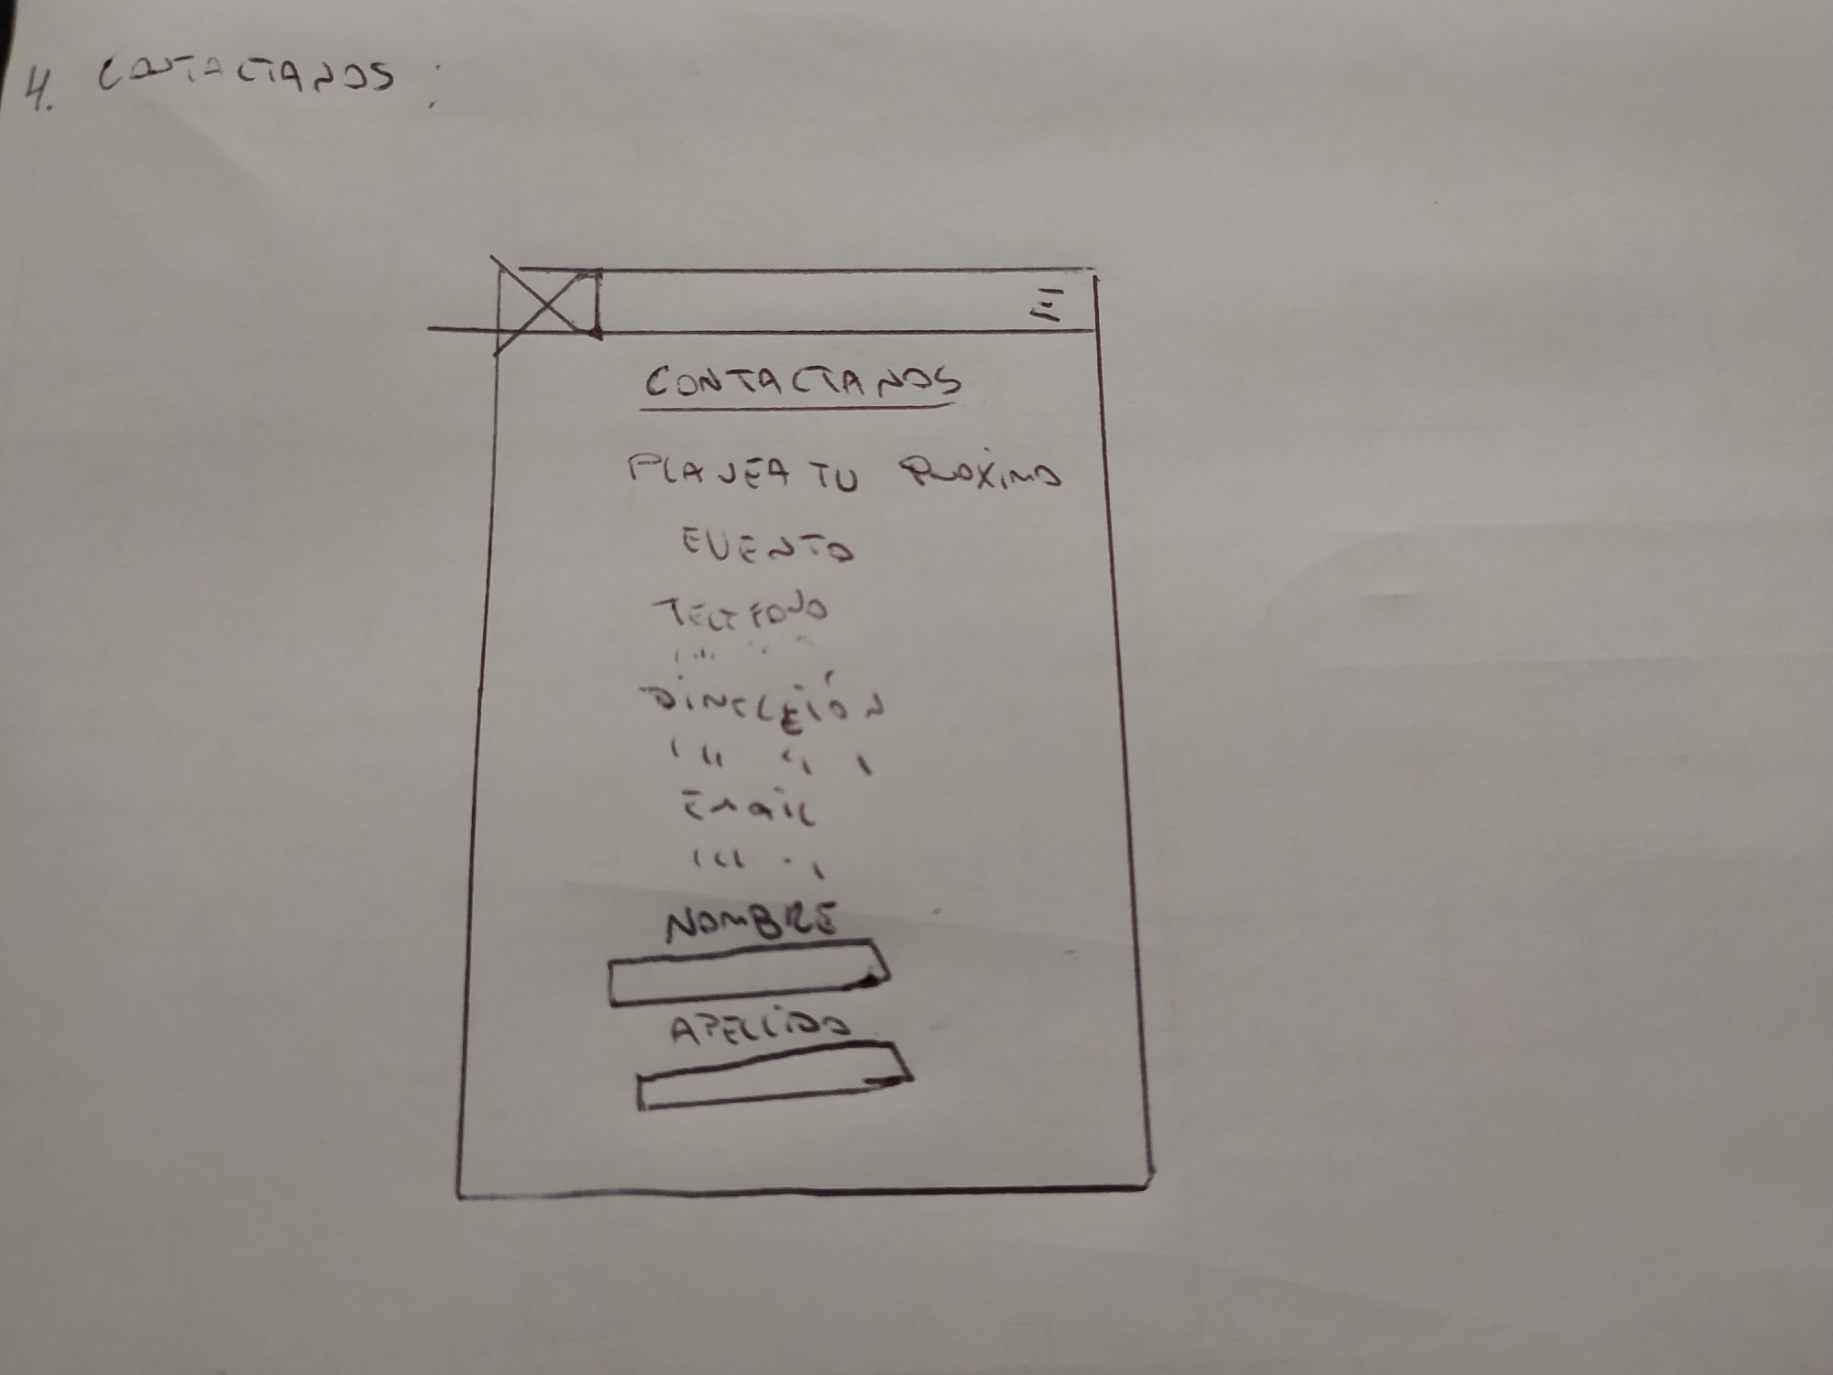 4. CONTACTANOS :
CONTACTANOS
PLANEA TU PROXIMO
EVENTO
TELEFONO
DIRECCIÓN
EMAIL
NOMBRE
APELLIDO